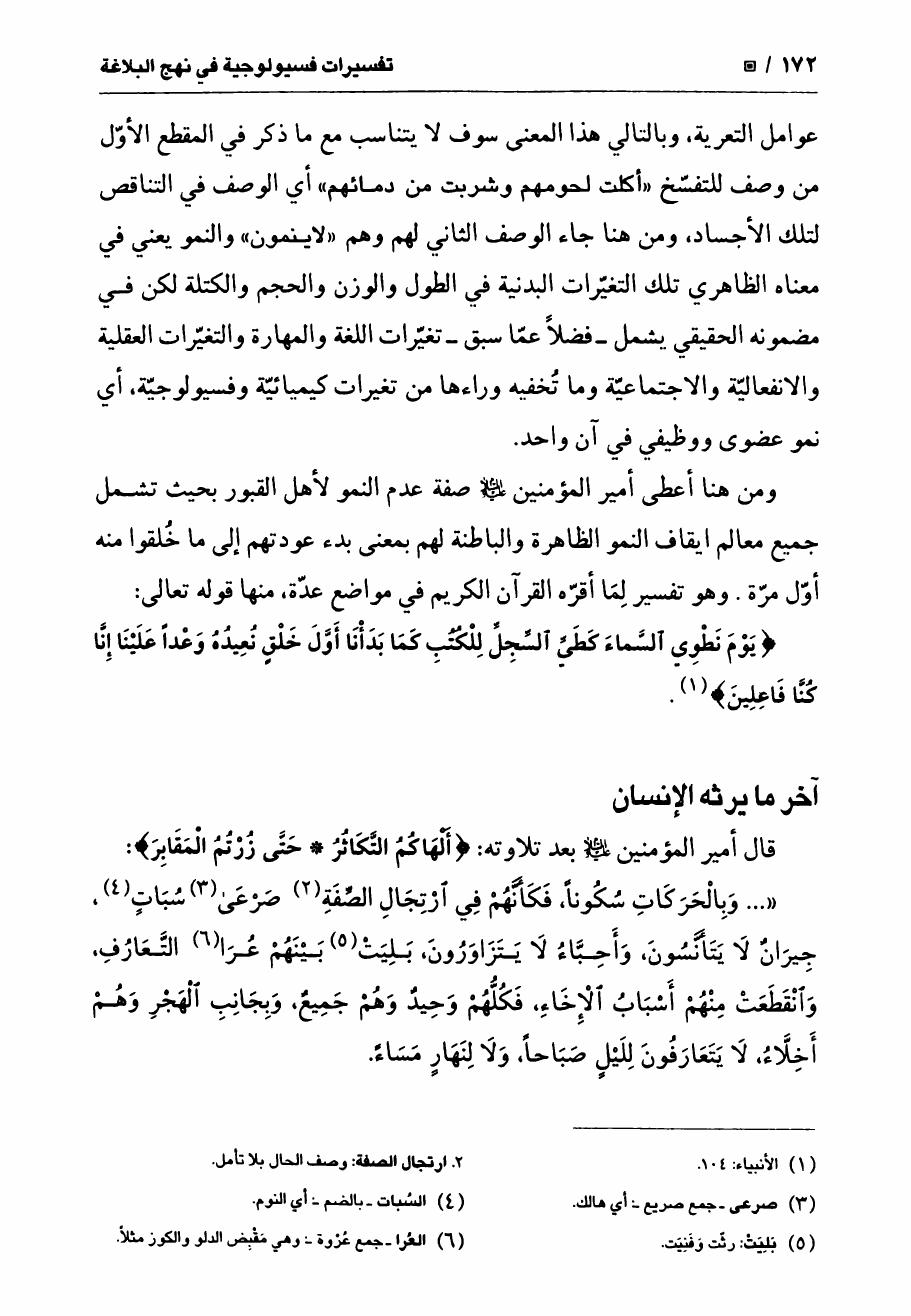 ١٧٢ / ▣ تفسيرات فسيولوجية في نهج البلاغة
عوامل التعرية، وبالتالي هذا المعنى سوف لا يتناسب مع ما ذكر في المقطع الأوّل
من وصف للتفسّخ «أكلت لحومهم وشربت من دمائهم» أي الوصف في التناقص
لتلك الأجساد، ومن هنا جاء الوصف الثاني لهم وهم «لاينمون» والنمو يعني في
معناه الظاهري تلك التغيّرات البدنية في الطول والوزن والحجم والكتلة لكن فـي
مضمونه الحقيقي يشمل ـ فضلاً عمّا سبق ـ تغيّرات اللغة والمهارة والتغيّرات العقلية
والانفعاليّة والاجتماعيّة وما تُخفيه وراءها من تغيرات كيميائيّة وفسيولوجيّة، أي
نمو عضوى ووظيفي في آن واحد.
ومن هنا أعطى أمير المؤمنين ﵇ صفة عدم النمو لأهل القبور بحيث تشـمل
جميع معالم ايقاف النمو الظاهرة والباطنة لهم بمعنى بدء عودتهم إلى ما خُلقوا منه
أوّل مرّة . وهو تفسير لِمَا أقرّه القرآن الكريم في مواضع عدّة، منها قوله تعالى:
﴿ يَوْمَ نَطْوِي ٱلسَّماءَ كَطَيِّ ٱلسِّجِلِّ لِلْكُتُبِ كَمَا بَدَأْنَا أَوَّلَ خَلْقٍ نُعِيدُهُ وَعْداً عَلَيْنَا إِنَّا
كُنَّا فَاعِلِينَ﴾(١) .
آخر ما يرثه الإنسان
قال أمير المؤمنين ﵇ بعد تلاوته: ﴿أَلْهَاكُمُ التَّكَاثُرُ * حَتَّى زُرْتُمُ الْمَقَابِرَ﴾:
«... وَبِالْحَرَكَاتِ سُكُوناً، فَكَأَنَّهُمْ فِي ٱرْتِجَالِ الصِّفَةِ(٢) صَرْعَىٰ(٣) سُبَاتٍ(٤)،
جِيرَانٌ لَا يَتَأَنَّسُونَ، وَأَحِـبَّاءُ لَا يَـتَزَاوَرُونَ، بَـلِيَتْ(٥) بَـيْنَهُمْ عُـرَا(٦) التَّـعَارُفِ،
وَٱنْقَطَعَتْ مِنْهُمْ أَسْبَابُ ٱلْإِخَاءِ، فَكُلُّهُمْ وَحِيدٌ وَهُمْ جَمِيعٌ، وَبِجَانِبِ ٱلْهَجْرِ وَهُـمْ
أَخِلَّاءُ، لَا يَتَعَارَفُونَ لِلَيْلٍ صَبَاحاً، وَلَا لِنَهَارٍ مَسَاءً.
(١) الأنبياء: ١٠٤.
٢. ارتجال الصفة: وصف الحال بلا تأمل.
(٣) صرعى ـ جمع صريع ـ: أي هالك.
(٤) السُبات ـ بالضم ـ: أي النوم.
(٥) بَلِيَتْ: رثّت وَفَنِيَت.
(٦) العُرا ـ جمع عُرْوة ـ: وهي مَقْبِض الدلو والكوز مثلاً.